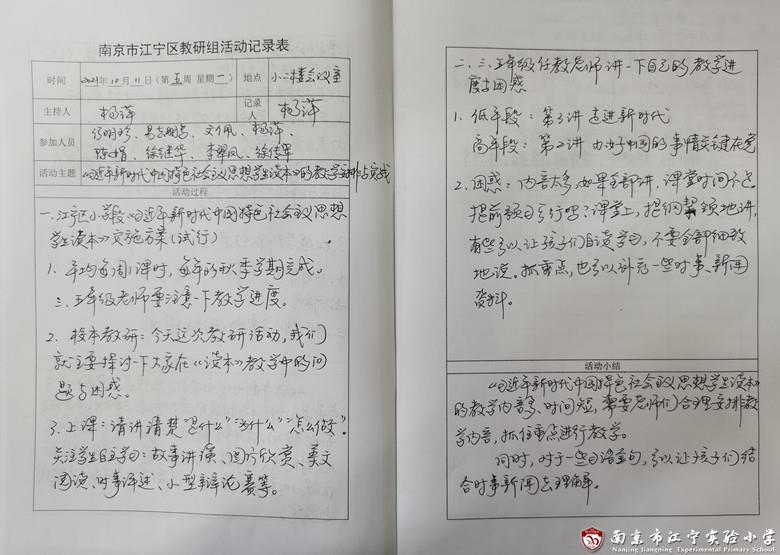 南京市江宁区教研组活动记录表
时间 2021年10月11日(第五周 星期一) 地点 小二楼会议室
主持人 杨萍 记录人 杨萍
参加人员
文佩、杨萍、
徐继华、李翠凤、徐传军
活动主题 《习近平新时代中国特色社会主义思想学生读本》的教学安排与实践
活动过程
一.江宁区小学段《习近平新时代中国特色社会主义思想
学生读本》实施方案(试行)
1. 平均每周1课时,每年的秋季学期完成。
三、五年级老师要注意一下教学进度。
2. 校本教研:今天这次教研活动,我们
就主要探讨一下大家在《读本》教学中的问
题与困惑。
3. 上课:请讲清楚“是什么”“为什么”“怎么做”。
关注学生自主学习:故事讲演、图片欣赏、美文
阅读、时事评述、小型辩论赛等。
二.三、五年级任教老师讲一下自己的教学进
度与困惑
1. 低年段:第3讲 走进新时代
高年段:第2讲 办好中国的事情关键在党
2. 困惑:内容太多,如果全部讲,课堂时间不足。
提前预习行吗?课堂上,提纲挈领地讲,
有些可以让孩子们自读学习,不要全部细致
地说。抓重点,也可以补充一些时事、新闻
资料。
活动小结
《习近平新时代中国特色社会主义思想学生读本》
的教学内容多、时间短,需要老师们合理安排教
学内容,抓住重点进行教学。
同时,对于一些习语金句,可以让孩子们结
合时事新闻去理解。
南京市江宁实验小学
Nanjing Jiangning Experimental Primary School